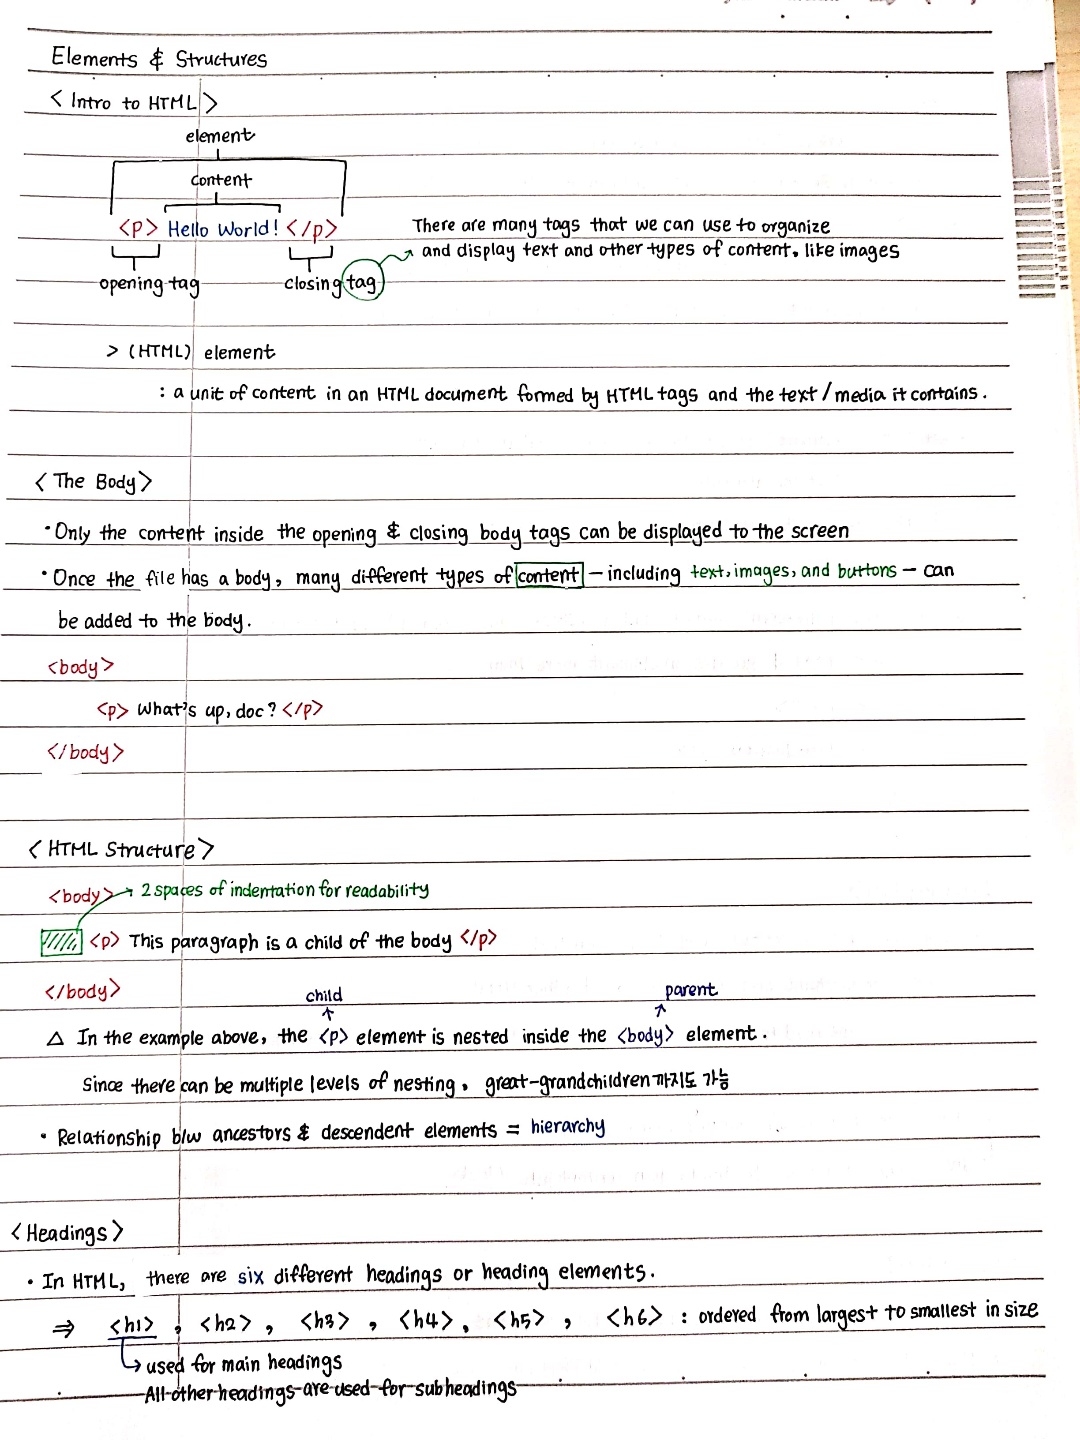 Elements & Structures
< Intro to HTML >
element
content
<p> Hello World! </p>
opening tag
closing tag
There are many tags that we can use to organize
and display text and other types of content, like images
> (HTML) element
: a unit of content in an HTML document formed by HTML tags and the text / media it contains.
< The Body >
· Only the content inside the opening & closing body tags can be displayed to the screen
· Once the file has a body, many different types of content – including text, images, and buttons – can
be added to the body.
<body>
<p> What's up, doc? </p>
</body>
< HTML Structure >
<body> → 2 spaces of indentation for readability
<p> This paragraph is a child of the body </p>
</body>
child
parent
△ In the example above, the <p> element is nested inside the <body> element.
Since there can be multiple levels of nesting, great-grandchildren까지도 가능
· Relationship b/w ancestors & descendent elements = hierarchy
< Headings >
· In HTML, there are six different headings or heading elements.
⇒ <h1>, <h2>, <h3>, <h4>, <h5>, <h6> : ordered from largest to smallest in size
↳ used for main headings
All other headings are used for subheadings